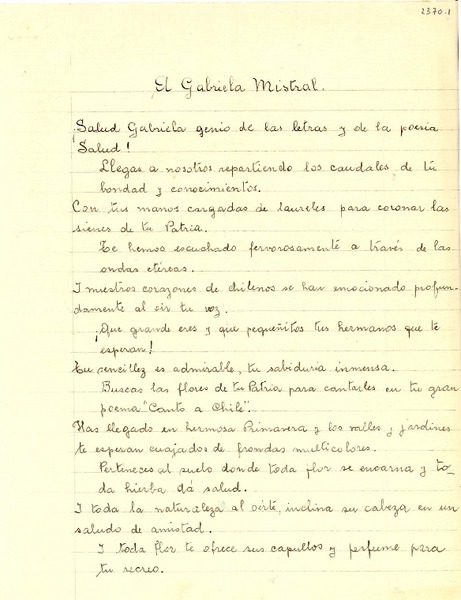 2370.1
A Gabriela Mistral.
¡Salud Gabriela genio de las letras y de la poesia
¡Salud!
Llegas a nosotros repartiendo los caudales de tu
bondad y conocimientos.
Con tus manos cargadas de laureles para coronar las
sienes de tu Patria.
Te hemos escuchado fervorosamente a través de las
ondas etéreas.
I nuestros corazones de chilenos se han emocionado profun-
damente al oir tu voz.
¡Que grande eres y que pequeñitos tus hermanos que te
esperan!
Tu sencillez es admirable, tu sabiduria inmensa.
Buscas las flores de tu Patria para cantarles en tu gran
poema "Canto a Chile".
Has llegado en hermosa Primavera y los valles y jardines
te esperan cuajados de frondas multicolores.
Perteneces al suelo donde toda flor se encarna y to-
da hierba dá salud.
I toda la naturaleza al oirte, inclina su cabeza en un
saludo de amistad.
I toda flor te ofrece sus capullos y perfume para
tu recreo.